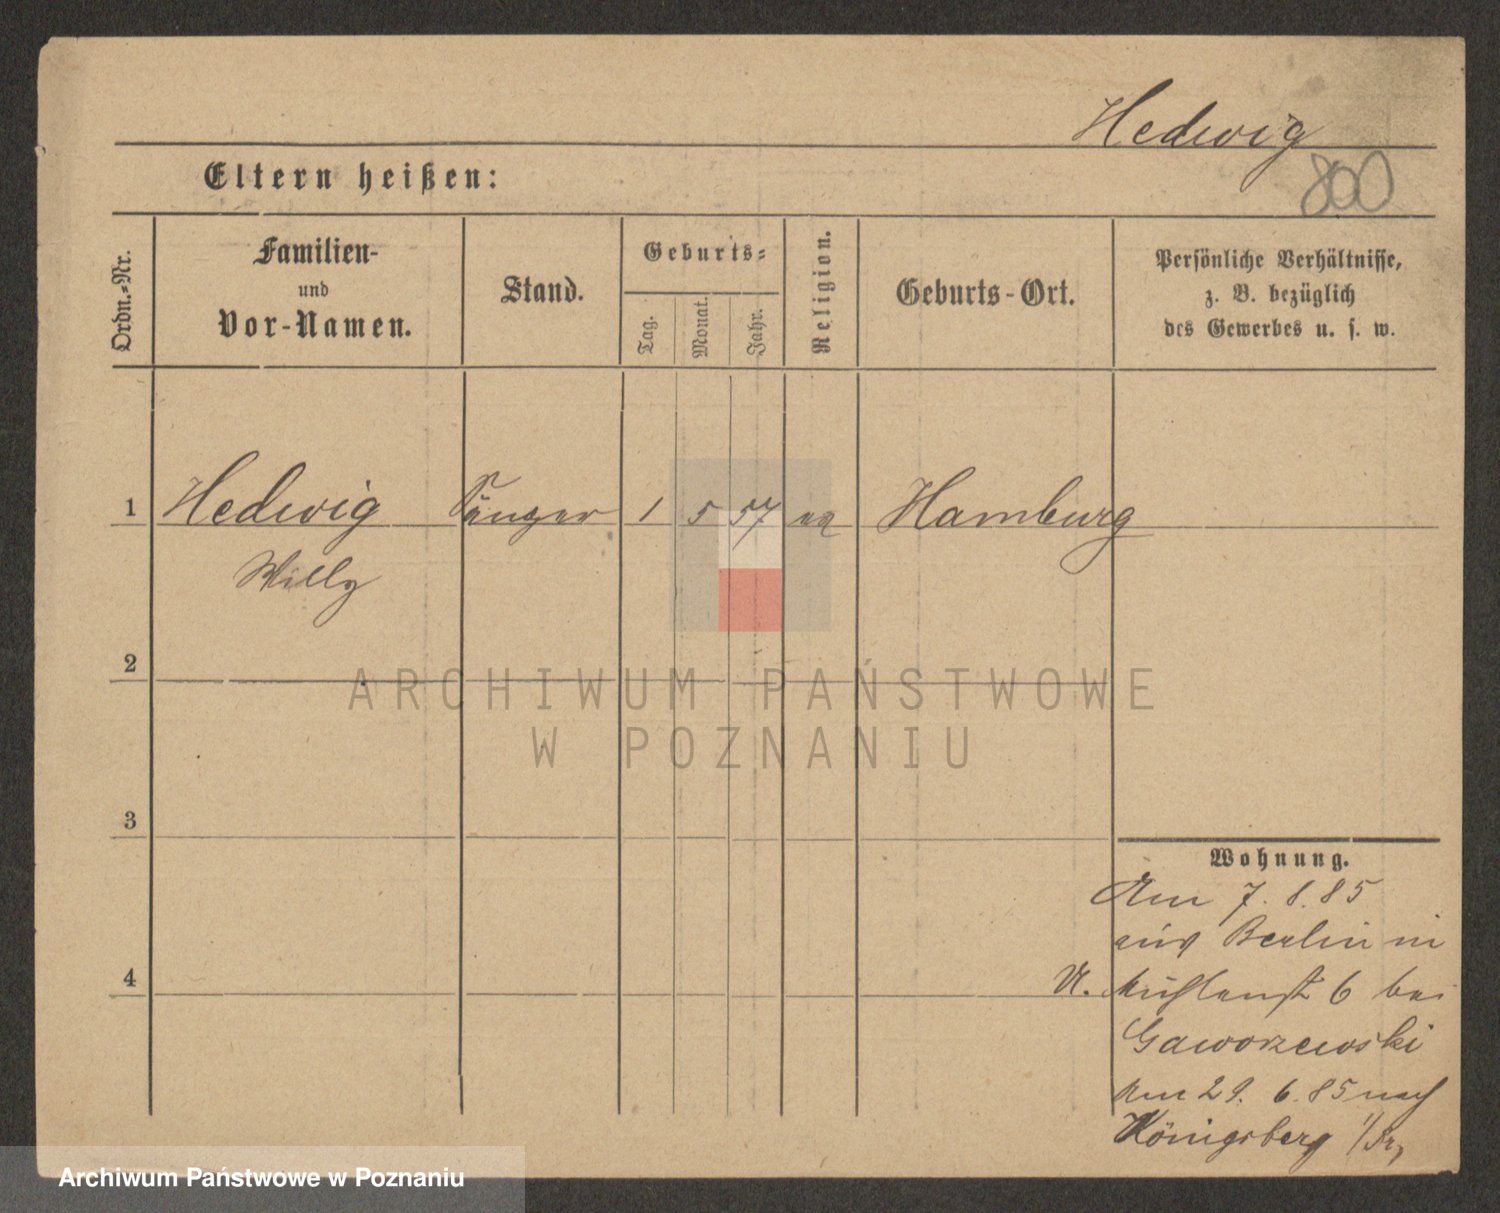 Hedwig
Eltern heißen:
800
Ordn.-Nr.
Familien-
und
Vor-Namen.
Stand.
Geburts-
Tag.
Monat.
Jahr.
Religion.
Geburts-Ort.
Persönliche Verhältnisse,
z. B. bezüglich
des Gewerbes u. s. w.
1 Hedwig Sänger 1 5 57 ev Hamburg
Willy
2
ARCHIWUM PAŃSTWOWE
W POZNANIU
3
Wohnung.
Am 7. 85
aus Berlin in
4
Mühlenst 6 bei
Gaworzewski
am 29. 6. 85 nach
Königsberg i/Pr,
Archiwum Państwowe w Poznaniu